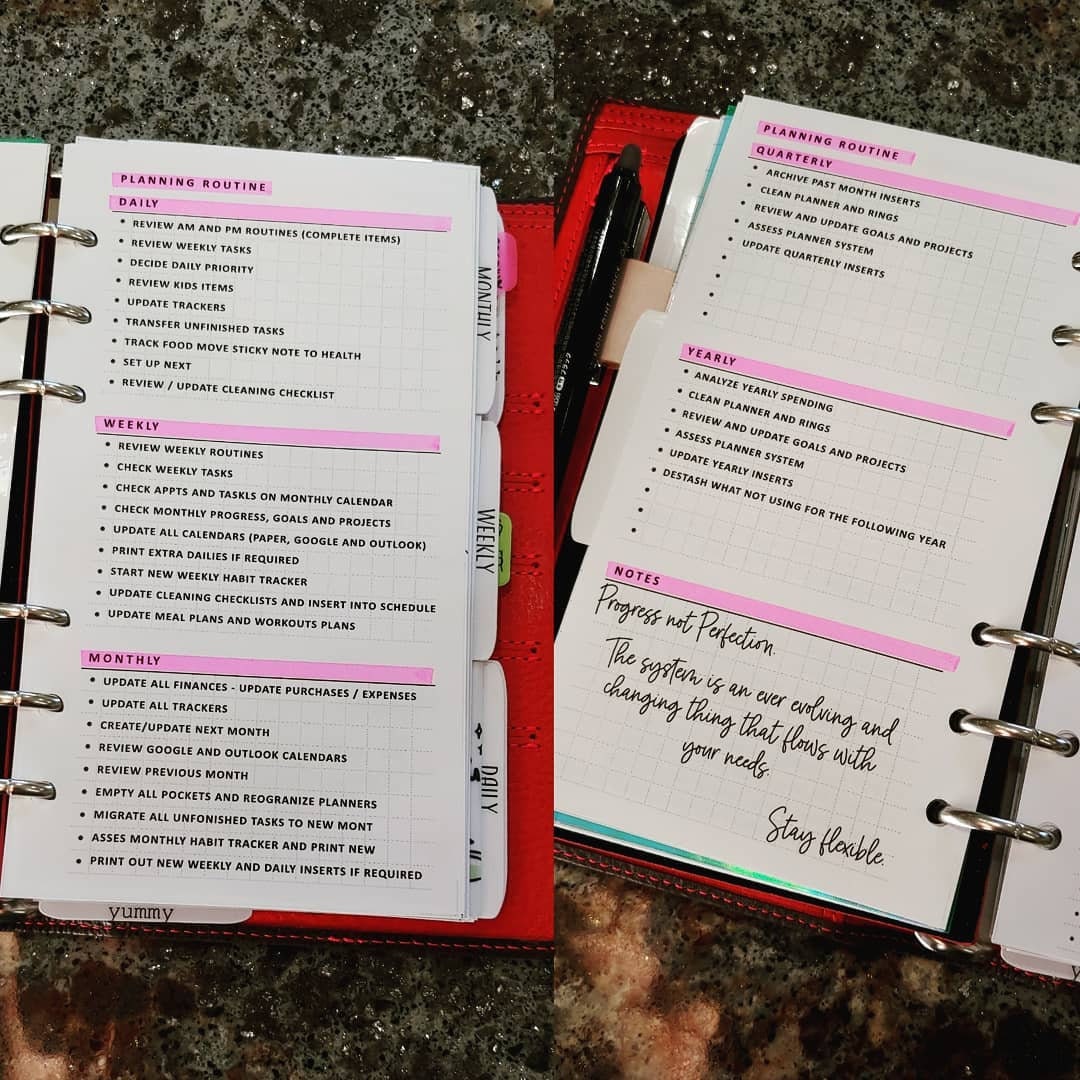 PLANNING ROUTINE
DAILY
• REVIEW AM AND PM ROUTINES (COMPLETE ITEMS)
• REVIEW WEEKLY TASKS
• DECIDE DAILY PRIORITY
• REVIEW KIDS ITEMS
• UPDATE TRACKERS
• TRANSFER UNFINISHED TASKS
• TRACK FOOD MOVE STICKY NOTE TO HEALTH
• SET UP NEXT
• REVIEW / UPDATE CLEANING CHECKLIST
WEEKLY
• REVIEW WEEKLY ROUTINES
• CHECK WEEKLY TASKS
• CHECK APPTS AND TASKLS ON MONTHLY CALENDAR
• CHECK MONTHLY PROGRESS, GOALS AND PROJECTS
• UPDATE ALL CALENDARS (PAPER, GOOGLE AND OUTLOOK)
• PRINT EXTRA DAILIES IF REQUIRED
• START NEW WEEKLY HABIT TRACKER
• UPDATE CLEANING CHECKLISTS AND INSERT INTO SCHEDULE
• UPDATE MEAL PLANS AND WORKOUTS PLANS
MONTHLY
• UPDATE ALL FINANCES - UPDATE PURCHASES / EXPENSES
• UPDATE ALL TRACKERS
• CREATE/UPDATE NEXT MONTH
• REVIEW GOOGLE AND OUTLOOK CALENDARS
• REVIEW PREVIOUS MONTH
• EMPTY ALL POCKETS AND REOGRANIZE PLANNERS
• MIGRATE ALL UNFONISHED TASKS TO NEW MONT
• ASSES MONTHLY HABIT TRACKER AND PRINT NEW
• PRINT OUT NEW WEEKLY AND DAILY INSERTS IF REQUIRED
yummy
MONTHLY
WEEKLY
DAILY
PLANNING ROUTINE
QUARTERLY
• ARCHIVE PAST MONTH INSERTS
• CLEAN PLANNER AND RINGS
• REVIEW AND UPDATE GOALS AND PROJECTS
• ASSESS PLANNER SYSTEM
• UPDATE QUARTERLY INSERTS
YEARLY
• ANALYZE YEARLY SPENDING
• CLEAN PLANNER AND RINGS
• REVIEW AND UPDATE GOALS AND PROJECTS
• ASSESS PLANNER SYSTEM
• UPDATE YEARLY INSERTS
• DESTASH WHAT NOT USING FOR THE FOLLOWING YEAR
NOTES
Progress not Perfection.
The system is an ever evolving and
changing thing that flows with
your needs.
Stay flexible.